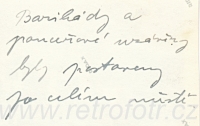 Barikády a
pancéřové uzávěry
byly postaveny
po celém městě
www.retrofotr.cz